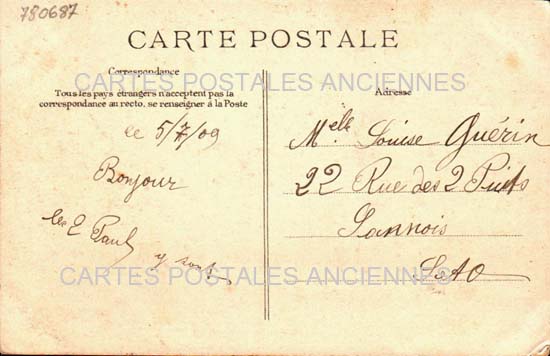 780687
CARTE POSTALE
Correspondance
Tous les pays étrangers n'acceptent pas la
correspondance au recto, se renseigner à la Poste
le 5/7/09
Bonjour
les 2 Paul
y sont
Adresse
Melle Louise Guérin
22 Rue des 2 Puits
Sannois
S et O
CARTES POSTALES ANCIENNES
CARTES POSTALES ANCIENNES